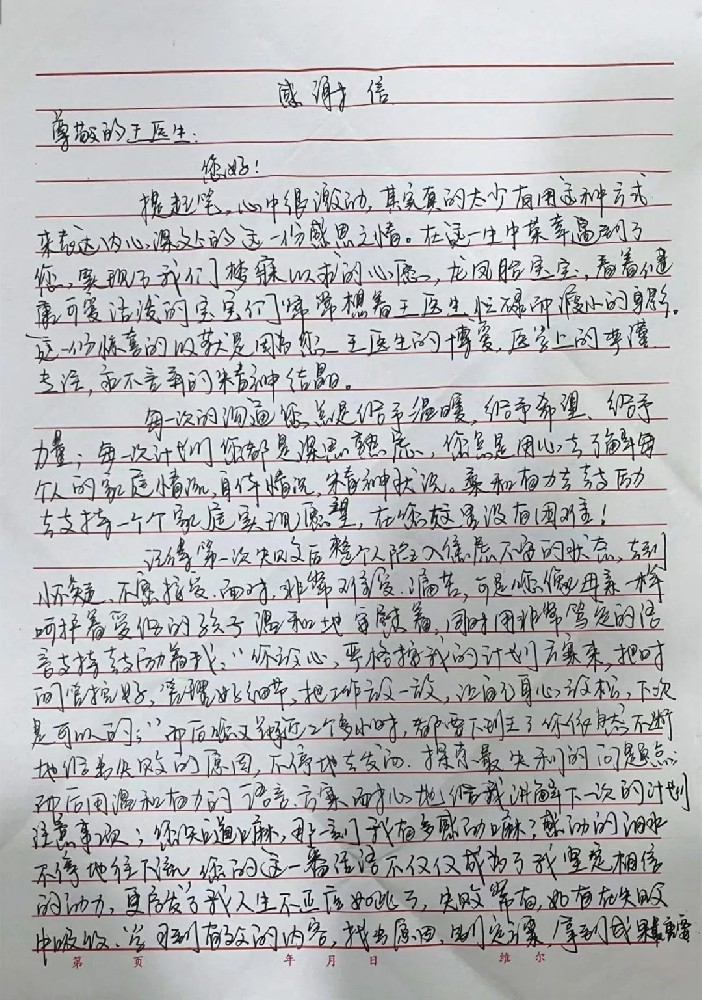 感谢信
尊敬的王医生：
您好！
提起笔，心中很激动，其实真的太少有用这种方式
来表达内心深处的这一份感恩之情。在这一生中荣幸遇到了
您，实现了我们梦寐以求的心愿，龙凤胎宝宝，看着健
康可爱活泼的宝宝们常常想着王医生忙碌而瘦小的身影。
这一份惊喜的收获是因为您—王医生的博爱，医学上的
专注，和不言弃的精神结晶。
每一次的沟通您总是给予温暖，给予希望、给予
力量；每一次计划您都是深思熟虑，您总是用心去了解每
个人的家庭情况，身体情况，精神状况。柔和有力去鼓励
去支持一个个家庭实现愿望，在您这里没有困难！
记得第一次失败后整个人陷入焦虑不安的状态，去到
怀疑、不愿接受、面对，非常难受、痛苦，可是您像母亲一样
呵护着受伤的孩子温和地安慰着，同时用非常笃定的语
言支持鼓励着我，“你放心，严格按我的计划方案来，把时
间管控好，管理好细节，把工作放一放，让自己身心放松，下次
是可以的；”而后您又接近2个多小时，都要下班了你依然不断
地给出失败的原因，不停地去发问、探索最失利的问题点；
动后用温和有力的语言方案耐心地给我讲解下一次的计划
注意事项；您知道嘛，那一刻我有多感动嘛；感动的泪水
不停地往下流，您的这一番话语不仅仅成为了我坚定相信
的动力，更启发了我人生不正应如此了，失败常有，如有在失败
中吸收、学习到有效的内容，找出原因，制定方案，拿到成果
第 页 年 月 日 维 尔